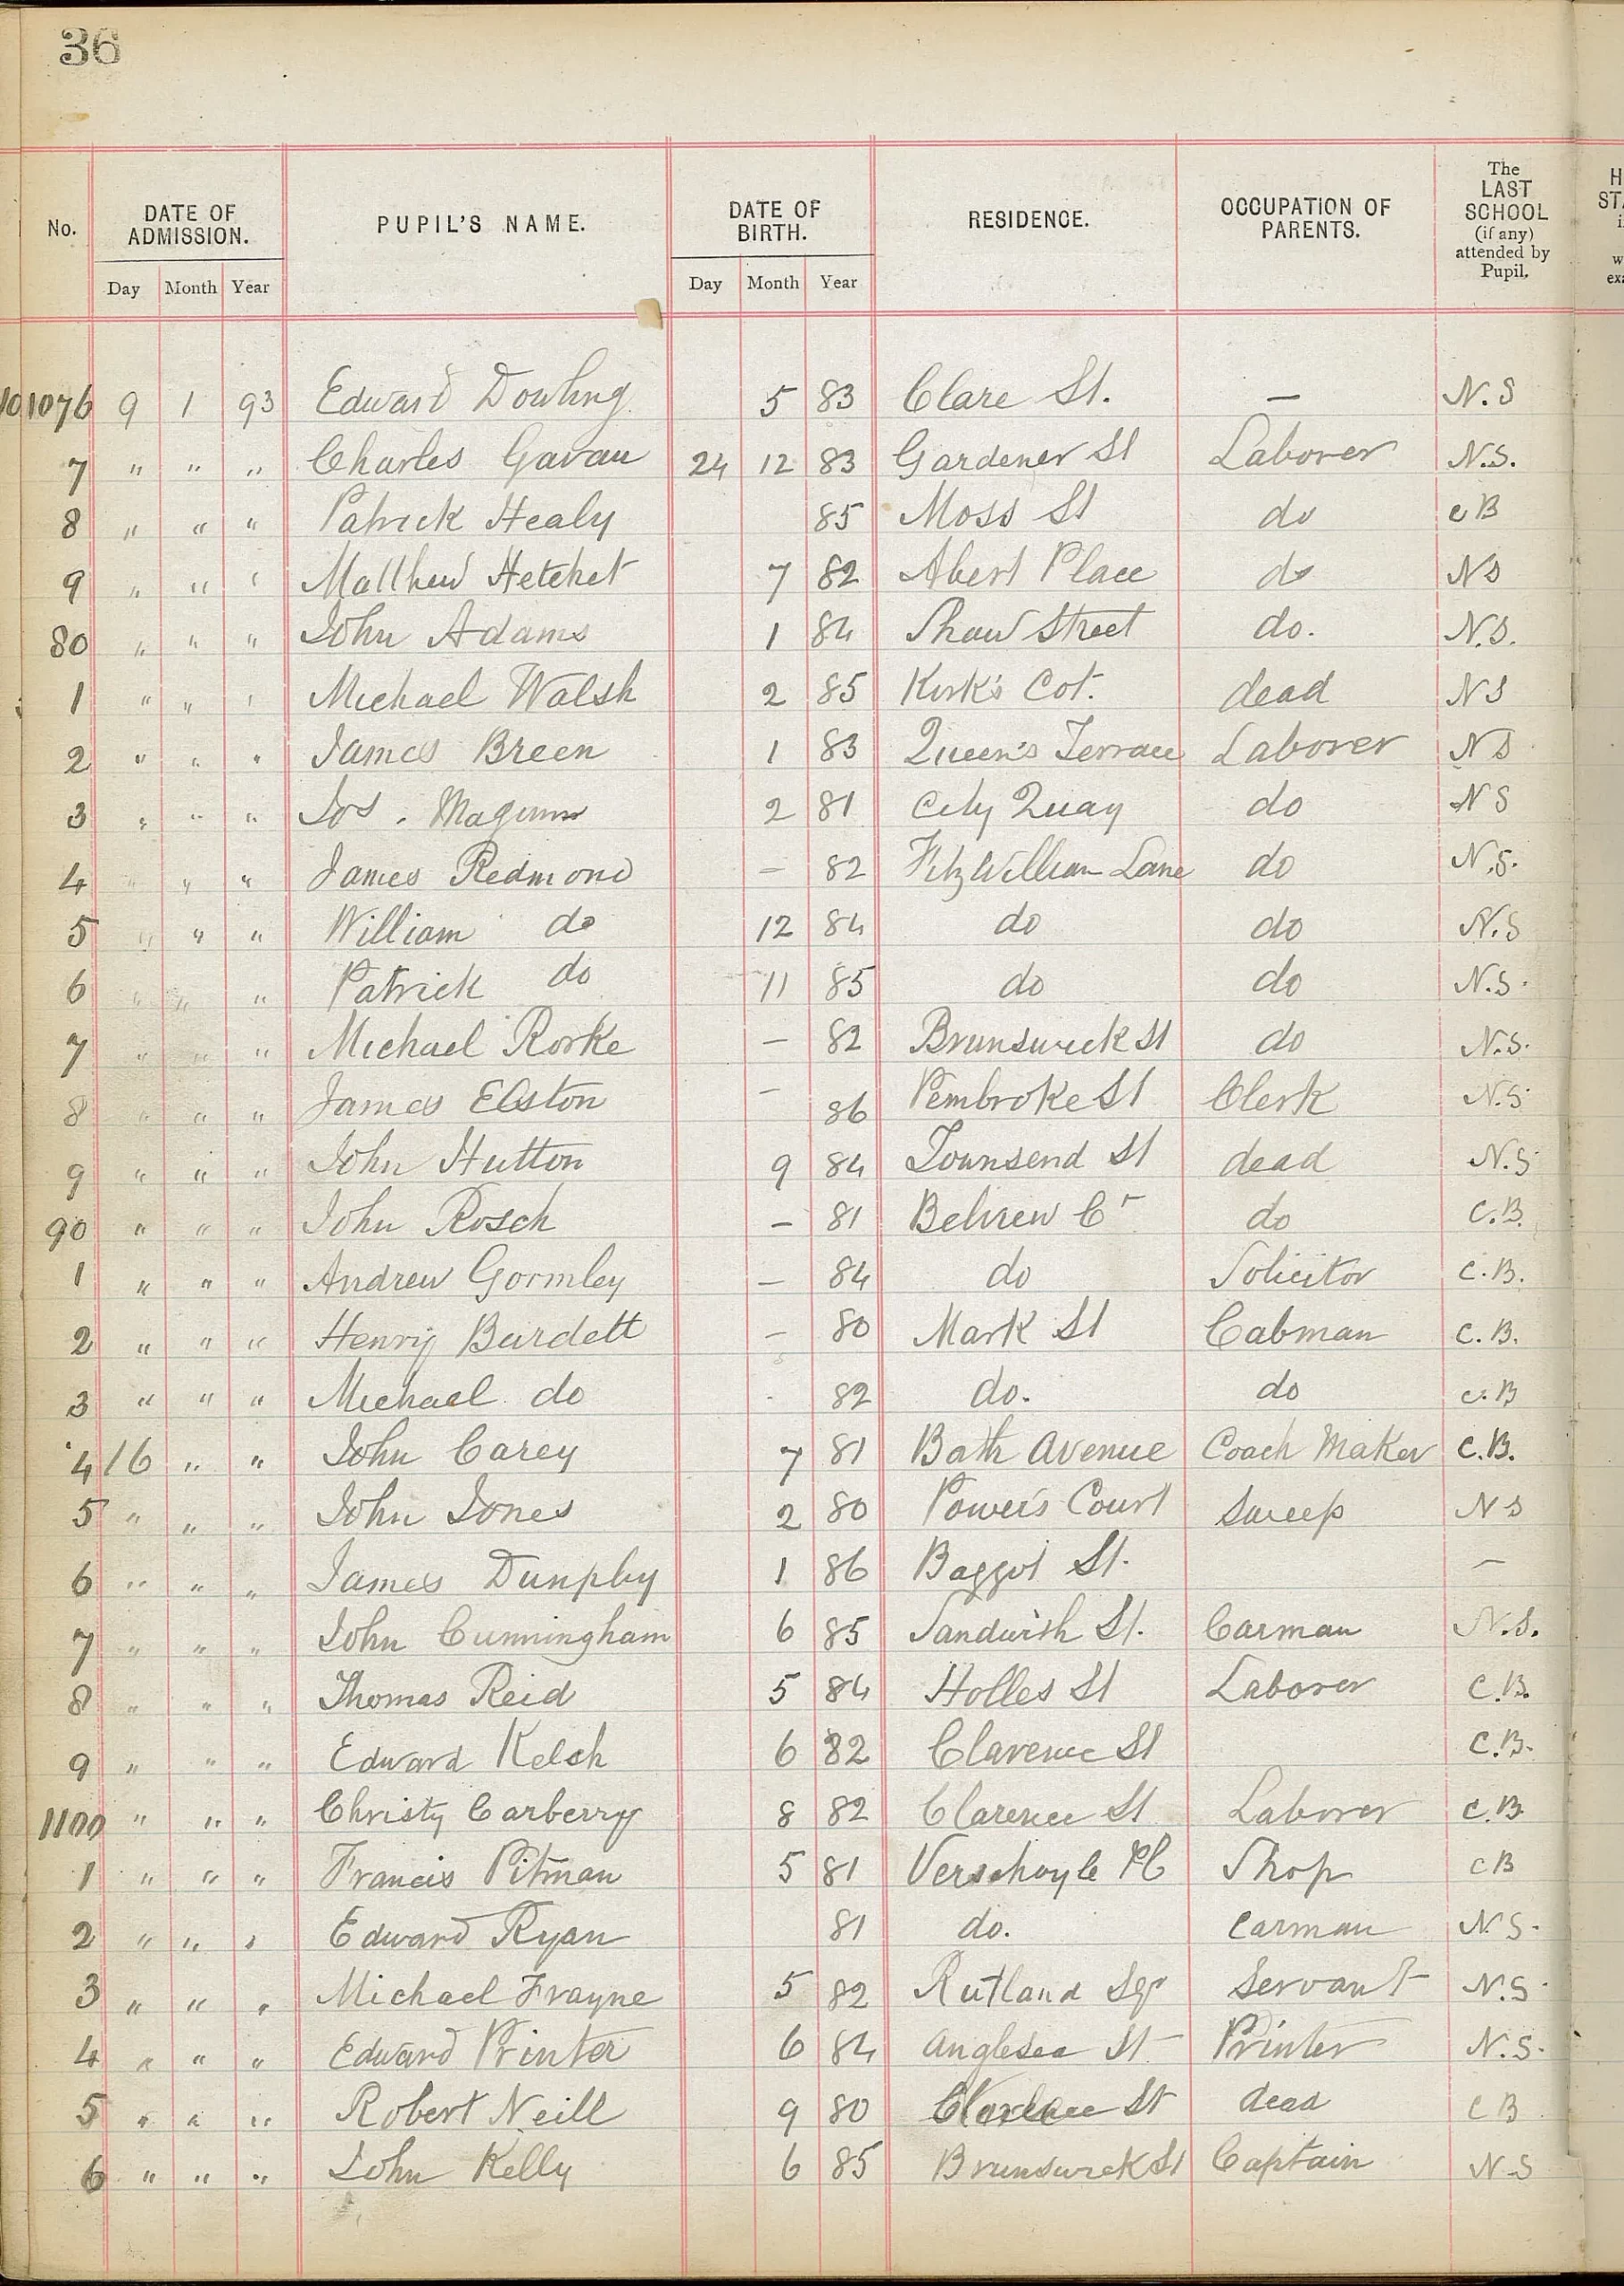 36
No. DATE OF ADMISSION. PUPIL'S NAME. DATE OF BIRTH. RESIDENCE. OCCUPATION OF PARENTS. The LAST SCHOOL (if any) attended by Pupil.
Day Month Year Day Month Year
1076 9 1 93 Edward Dowling 5 83 Clare St. — N.S
7 " " " Charles Gavan 24 12 83 Gardener St Laborer N.S.
8 " " " Patrick Healy 85 Moss St do C B
9 " " " Matthew Hetchet 7 82 Abert Place do NS
80 " " " John Adams 1 84 Shaw Street do. N.S.
1 " " " Michael Walsh 2 85 Kirk's Cot. dead NS
2 " " " James Breen 1 83 Queen's Terrace Laborer NS
3 " " " Jos. 2 81 City Quay do NS
4 " " " James Redmond — 82 FitzWilliam Lane do N.S.
5 " " " William do 12 84 do do N.S
6 " " " Patrick do 11 85 do do N.S.
7 " " " Michael Rorke — 82 Brunswick St do N.S.
8 " " " James Elston — 86 Pembroke St Clerk N.S.
9 " " " John Hutton 9 84 Townsend St dead N.S
90 " " " John Rosch — 81 C.B.
1 " " " Andrew Gormley — 84 do Solicitor C.B.
2 " " " Henry Burdett — 80 Mark St Cabman C.B.
3 " " " Michael do 82 do. do C.B
4 16 " " John Carey 7 81 Bath Avenue Coach Maker C.B.
5 " " " John Jones 2 80 Power's Court Sweep NS
6 " " " James Dunphy 1 86 Baggot St. —
7 " " " John Cunningham 6 85 Sandwith St. Carman N.S.
8 " " " Thomas Reid 5 84 Holles St Laborer C.B.
9 " " " Edward Kelsh 6 82 Clarence St C.B.
1100 " " " Christy Carberry 8 82 Clarence St Laborer C.B
1 " " " Francis Pitman 5 81 Verschoyle Pl Shop CB
2 " " " Edward Ryan 81 do. Carman N.S.
3 " " " Michael Frayne 5 82 Rutland Sqr Servant N.S.
4 " " " Edward Printer 6 84 Anglesea St Printer N.S.
5 " " " Robert Neill 9 80 Clarence St dead CB
6 " " " John Kelly 6 85 Brunswick St Captain N.S